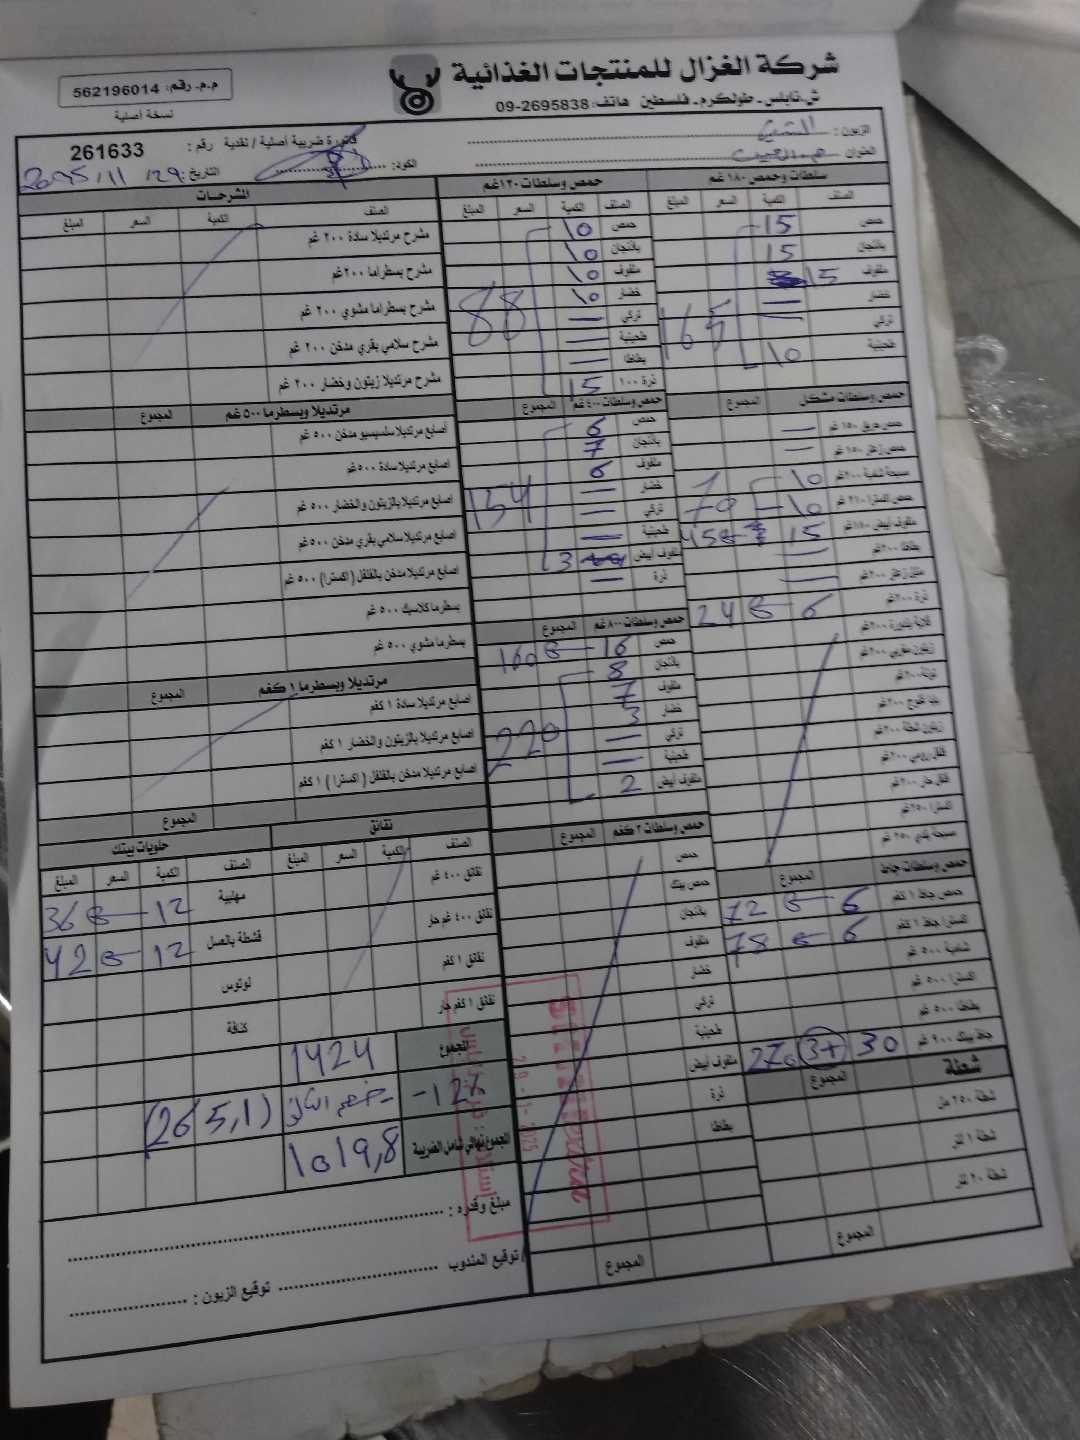 شركة الغزال للمنتجات الغذائية
ش.نابلس - طولكرم - فلسطين هاتف: 09-2695838
م.م. رقم: 562196014
نسخة أصلية
فاتورة ضريبة أصلية / نقدية رقم : 261633
الزبون :
العنوان
الكود:
التاريخ: 2025/11/29
سلطات وحمص ١٨٠ غم
الصنف الكمية السعر المبلغ
حمص 15
باذنجان 15
ملفوف 15
خضار —
تركي —
طحينية 10
165
حمص وسلطات مشكل المجموع
حمص حريق ١٥٠ غم —
حمص زعتر ١٥٠ غم —
مسبحة شامية ٢٠٠ غم 10
حمص اكسترا ٢١٠ غم 10
70
ملفوف أبيض ١٨٠ غم 15 45
بطاطا ٢٠٠ غم —
متبل زعتر ٢٠٠ غم —
ذرة ٢٠٠ غم 6 24
قلاية بندورة ٢٠٠ غم
زيتون مغربي ٢٠٠ غم
تونة ٢٠٠ غم
بابا غنوج ٢٠٠ غم
زيتون سلطة ٢٠٠ غم
فلفل رومي ٢٠٠ غم
فلفل حار ٢٠٠ غم
اكسترا ٢٥٠ غم
مسبحة بلدي ٢٥٠ غم
حمص وسلطات جاط المجموع
حمص جاط ١ كغم 6 72
اكسترا جاط ١ كغم 6 78
شامية ٥٠٠ غم
اكسترا ٥٠٠ غم
بطاطا ٥٠٠ غم
جاط بيتك ٩٠٠ غم 30 (3+) 270
شطة المجموع
شطة ٢٥٠ مل
شطة ١ لتر
شطة ٢٠ لتر
المجموع
حمص وسلطات ١٢٠ غم
الصنف الكمية السعر المبلغ
حمص 10
باذنجان 10
ملفوف 10
خضار 10
تركي —
طحينية —
بطاطا —
ذرة ١٠٠ 15
88
حمص وسلطات ٤٠٠ غم المجموع
حمص 6
باذنجان 7
ملفوف 6
خضار —
تركي —
طحينية —
ملفوف أبيض 3
ذرة —
154
حمص وسلطات ٨٠٠ غم المجموع
حمص 16 160
باذنجان 8
ملفوف 7
خضار 3
تركي —
طحينية —
ملفوف أبيض 2
220
حمص وسلطات ٢ كغم المجموع
حمص
حمص بيتك
باذنجان
ملفوف
خضار
تركي
طحينية
ملفوف أبيض
ذرة
بطاطا
المجموع
المشرحات
الصنف الكمية السعر المبلغ
مشرح مرتديلا سادة ٢٠٠ غم
مشرح بسطراما ٢٠٠ غم
مشرح بسطراما مشوي ٢٠٠ غم
مشرح سلامي بقري مدخن ٢٠٠ غم
مشرح مرتديلا زيتون وخضار ٢٠٠ غم
مرتديلا وبسطرما ٥٠٠ غم المجموع
أصابع مرتديلا سلسيسيو مدخن ٥٠٠ غم
اصابع مرتديلا سادة ٥٠٠ غم
اصابع مرتديلا بالزيتون والخضار ٥٠٠ غم
اصابع مرتديلا سلامي بقري مدخن ٥٠٠ غم
اصابع مرتديلا مدخن بالفلفل ( اكسترا ) ٥٠٠ غم
بسطرما كلاسيك ٥٠٠ غم
بسطرما مشوي ٥٠٠ غم
مرتديلا وبسطرما ١ كغم المجموع
اصابع مرتديلا سادة ١ كغم
اصابع مرتديلا بالزيتون والخضار ١ كغم
اصابع مرتديلا مدخن بالفلفل ( اكسترا ) ١ كغم
المجموع
نقانق
الصنف الكمية السعر المبلغ
نقانق ٤٠٠ غم
نقانق ٤٠٠ غم حار
نقانق ١ كغم
نقانق ١ كغم حار
حلويات بيتك
الصنف الكمية السعر المبلغ
مهلبية 12 36
قشطة بالعسل 12 42
لوتوس
كنافة
المجموع 1424
-12%
(265,1)
المجموع نهائي شامل الضريبة 1019,8
مبلغ وقدره :
توقيع المندوب
توقيع الزبون :